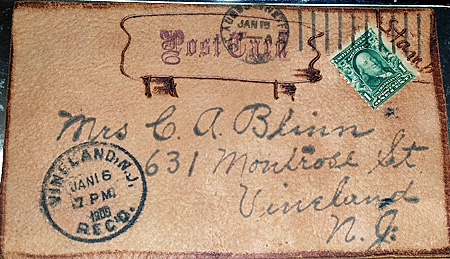 JAN 16
Post Card
Stamp
Mrs C. A. Blinn
631 Montrose St.
Vineland
N. J.
VINELAND, N.J.
JAN 16
7 PM
REC'D.